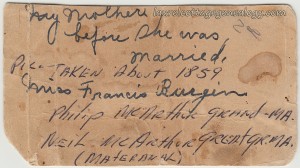 My Mother
before she was
married.
Pic - TAKEN About 1859
Miss Francis
Philip McArthur GRAND-MA.
NEIL MCARTHUR GREAT GR.MA.
(MATERNAL)